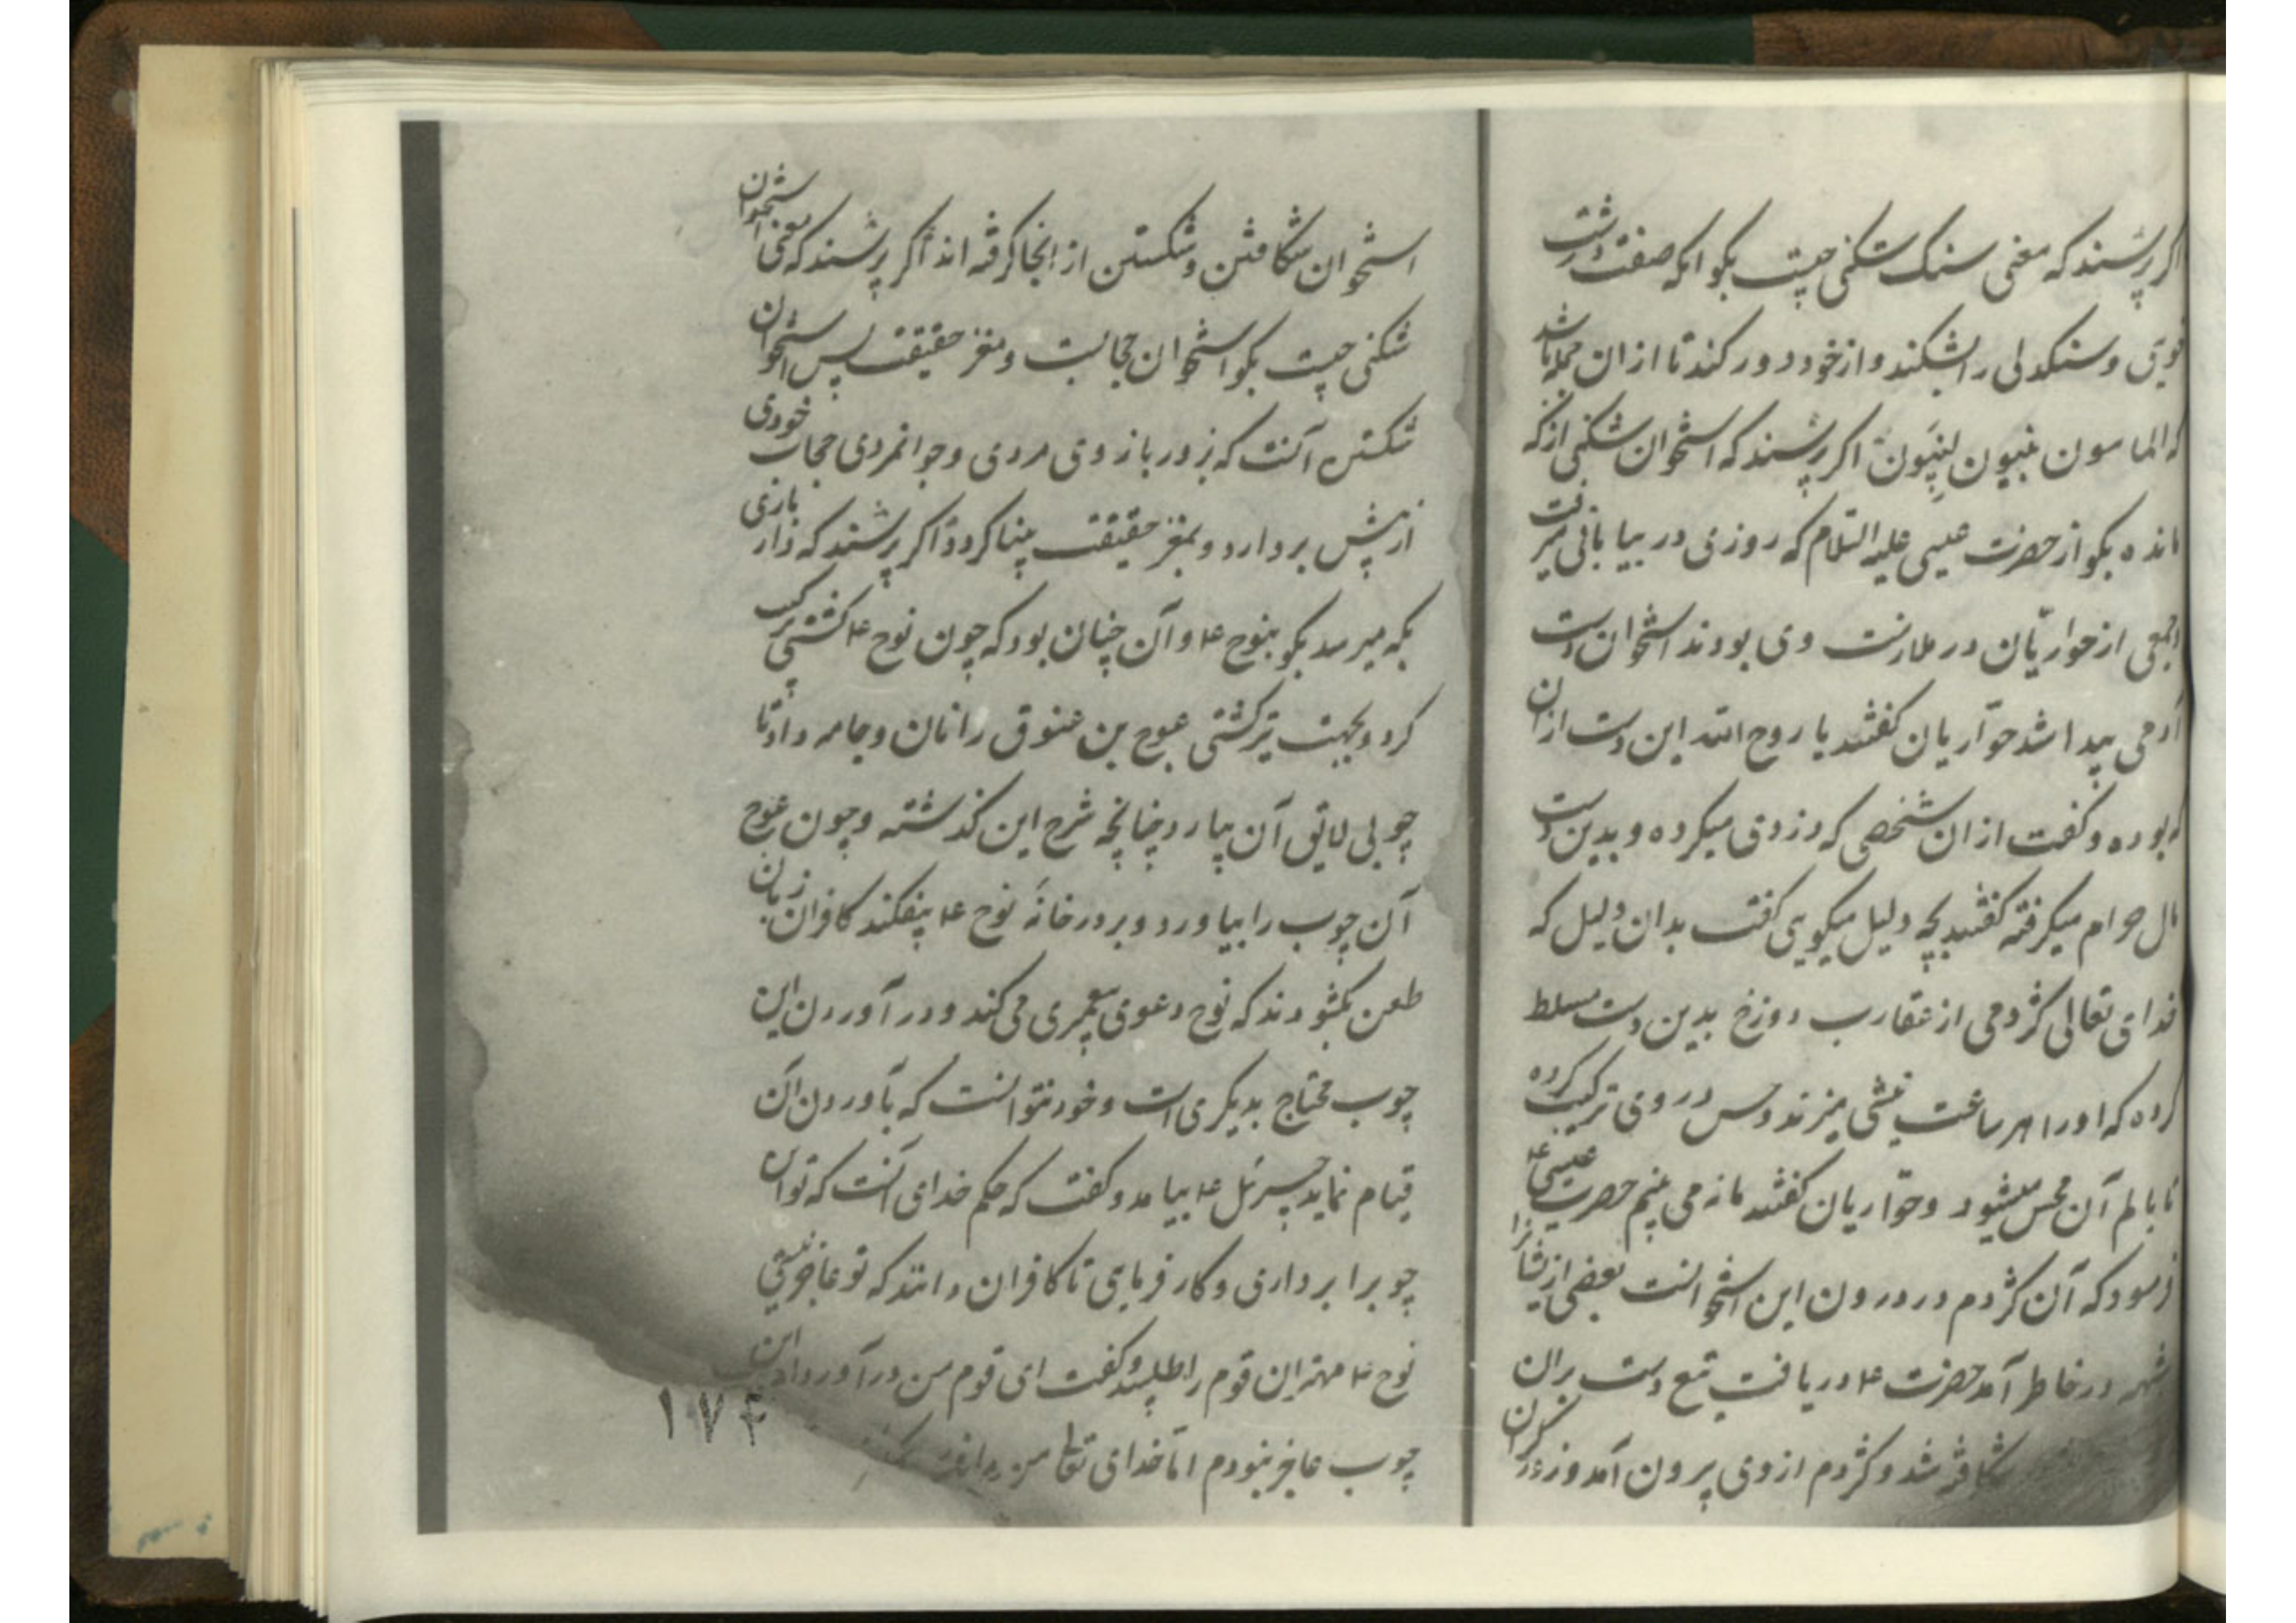 اکر پرسند که معنی سنک شکنی چیست بکو انکه صفت درشت
خویی و سنکدلی را بشکند و از خود دور کند تا از ان جمله باشد
که المامنون اکر پرسند که استخوان شکنی از که
مانده بکو از حضرت عیسی علیه السلام که روزی در بیابانی میرفت
جمعی از حواریّان در ملازمت وی بودند استخوان دست
آدمی پیدا شد حوّاریان کفتند یا روح الله این دست از ان
که بوده و کفت از ان شخصی که دزدی میکرده و بدین دست
مال حرام میکرفته کفتند بچه دلیل میکویی کفت بدان دلیل که
خدای تعالی کژدمی از عقارب دوزخ بدین دست مسلط
کرده که اورا هر ساعت نیشی میزند و حس در وی ترکیب کرده
تا بالم آن محس میشود و حوّاریان کفتند ما نمی بینم حضرت عیسی ع
فرمود که آن کژدم در درون این استخوانست بعضی از یشانرا
شبهه در خاطر آمد حضرت ع دریافت تیع دست بران
شکافته شد و کژدم از وی بیرون آمد و زور
استخوان شکافتن و شکستن از اینجا کرفته اند اکر پرسند که معنی استخوان
شکنی چیست بکو استخوان حجابست و مغز حقیقت پس استخوان
شکستن آنست که بزور بازوی مردی و جوانمردی حجاب خودی
از پیش بردارد و بمغز حقیقت بینا کردد اکر پرسند که دار بازی
بکه میرسد بکو بنوح ع و آن چنان بود که چون نوح ع کشتی ترکیب
کرد و بجهت تیر کشتی عوج بن عنوق را نان و جامه داد تا
چوبی لایق آن بیارد چنانچه شرح این کذشته و چون عوج
آن چوب را بیاورد و بر در خانهٔ نوح ع بیفکند کافران زبان
طعن بکشودند که نوح دعوی پیغمبری می کند و در آوردن این
چوب محتاج بدیکری است و خود نتوانست که بآوردن آن
قیام نماید جبرئیل ع بیامد و کفت که حکم خدای آنست که تو این
چوب را برداری و کار فرمای تا کافران دانند که تو عاجز نیستی
نوح ع مهتران قوم را طلبید و کفت ای قوم من در آوردن این
چوب عاجز نبودم امّا خدای تعالی من
۱۷۴